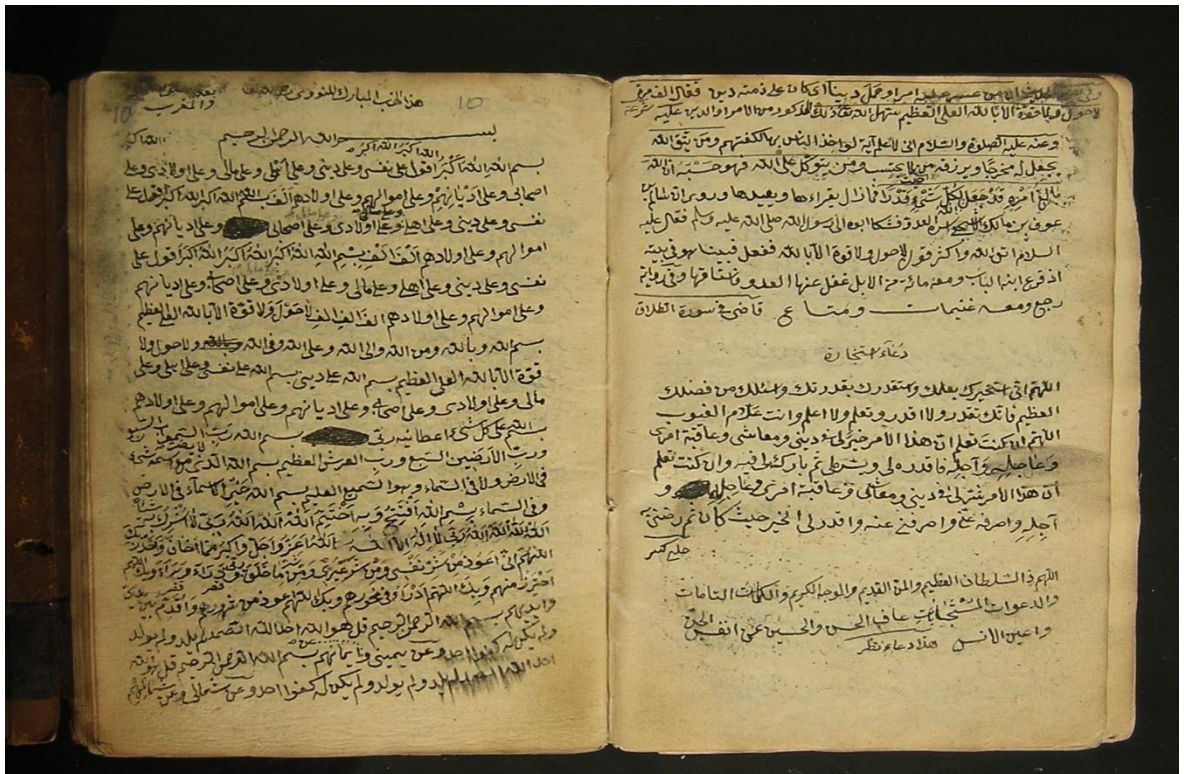 من عسر عليه امر او حمل دينا او كان على ذمته دين فقال الف مرة
لا حول ولا قوة الا بالله العلي العظيم سهل الله المذكور من الامر او الدين عليه
وعنه عليه الصلوة والسلام اني لاعلم آية لو اخذ الناس بها لكفتهم ومن يتق الله
يجعل له مخرجا ويرزقه من حيث لا يحتسب ومن يتوكل على الله فهو حسبه ان الله
بالغ امره قد جعل الله لكل شئ قدرا فما زال يقراءها ويعيدها وروى ان سالم بن
عوف بن مالك اسره العدو فشكا ابوه الى رسول الله صلى الله عليه وسلم فقال عليه
السلام اتق الله واكثر قول لا حول ولا قوة الا بالله ففعل فبينا هو في بيته
اذ قرع ابنه الباب ومعه مائة من الابل غفل عنها العدو فاستاقها وفي رواية
رجع ومعه غنيمات ومتاع قاضى في سورة الطلاق
دعاء استخارة
اللهم اني استخيرك بعلمك واستقدرك بقدرتك واسئلك من فضلك
العظيم فانك تقدر ولا اقدر وتعلم ولا اعلم وانت علام الغيوب
اللهم ان كنت تعلم ان هذا الامر خير لي في ديني ومعاشي وعاقبة امري
وعاجله وآجله فاقدره لي ويسره لي ثم بارك لي فيه وان كنت تعلم
ان هذا الامر شر لي في ديني ومعاشي وعاقبة امري وعاجله و
آجله واصرفه عني واصرفني عنه واقدر لي الخير حيث كان ثم رضني به
حلبي كبير
اللهم ذي السلطان العظيم والمن القديم والوجه الكريم والكلمات التامات
والدعوات المستجابات عاف الحسن والحسين عن انفس الجن
واعين الانس هذا دعاء نظر
هذا الحزب المبارك للنووي
والمغرب
10 10
بسم الله الرحمن الرحيم
الله اكبر الله اكبر
بسم الله الله اكبر اقول على نفسي وعلى ديني وعلى اهلي وعلى مالي وعلى اولادي وعلى
اصحابي وعلى اديانهم وعلى اموالهم وعلى اولادهم الف بسم الله الله اكبر الله اكبر اقول على
نفسي وعلى ديني وعلى اهلي وعلى اولادي وعلى اصحابي وعلى اديانهم وعلى
اموالهم وعلى اولادهم الف الف بسم الله الله اكبر الله اكبر الله اكبر اقول على
نفسي وعلى ديني وعلى اهلي وعلى مالي وعلى اولادي وعلى اصحابي وعلى اديانهم
وعلى اموالهم وعلى اولادهم الف الف الف لا حول ولا قوة الا بالله العلي العظيم
بسم الله وبالله ومن الله والى الله وعلى الله وفي الله ولا حول ولا
قوة الا بالله العلي العظيم بسم الله على ديني بسم الله على نفسي وعلى اهلي وعلى
مالي وعلى اولادي وعلى اصحابي وعلى اديانهم وعلى اموالهم وعلى اولادهم
بسم الله على كل شئ اعطانيه ربي بسم الله رب السموات السبع
ورب الارضين السبع ورب العرش العظيم بسم الله الذي لا يضر مع اسمه شئ
في الارض ولا في السماء وهو السميع العليم بسم الله خير الاسماء في الارض
وفي السماء بسم الله افتتح وبه اختتم الله الله الله ربي لا اشرك به شيأ
الله الله الله ربي لا اله الا الله الله اعز واجل واكبر مما اخاف واحذر
اللهم اني اعوذ بك من شر نفسي ومن شر غيري ومن شر ما خلق ربي
احترز منهم وبك اللهم ادرأ في نحورهم وبك اللهم اعوذ من شرورهم واقدم بين
وايديهم بسم الله الرحمن الرحيم قل هو الله احد الله الصمد لم يلد ولم يولد
ولم يكن له كفوا احد وعن يميني وايمانهم بسم الله الرحمن الرحيم قل هو الله
احد الله الصمد لم يلد ولم يولد ولم يكن له كفوا احد وعن شمالي وعن